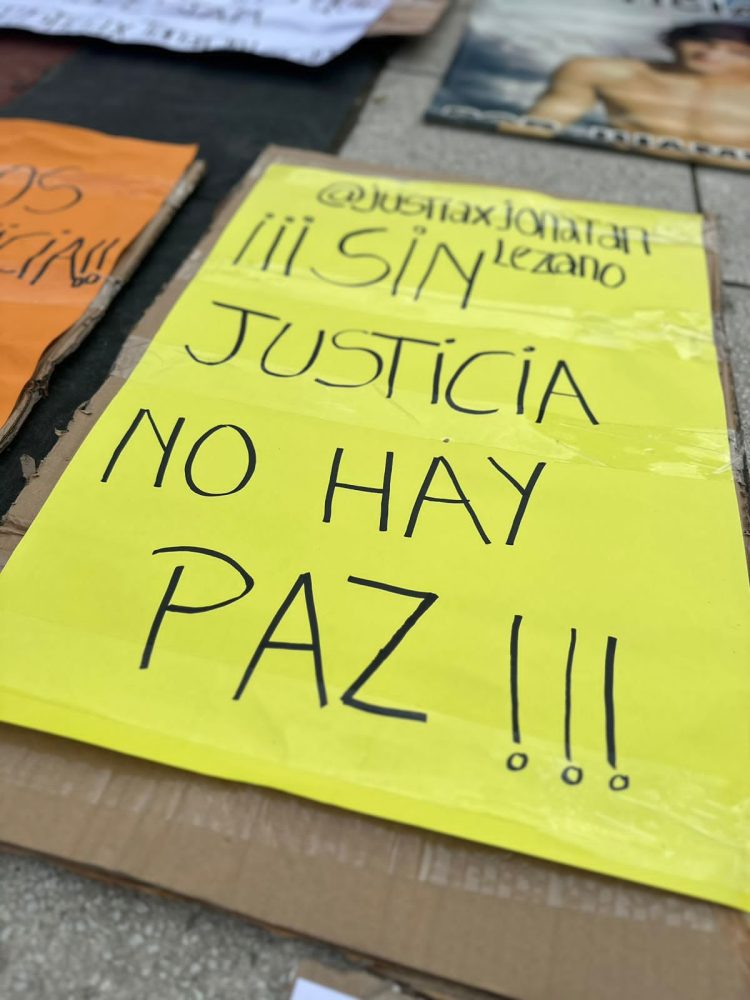 @justiaxjonatan
Lezano
¡¡¡SIN
JUSTICIA
NO HAY
PAZ!!!
OS
ICIA!!